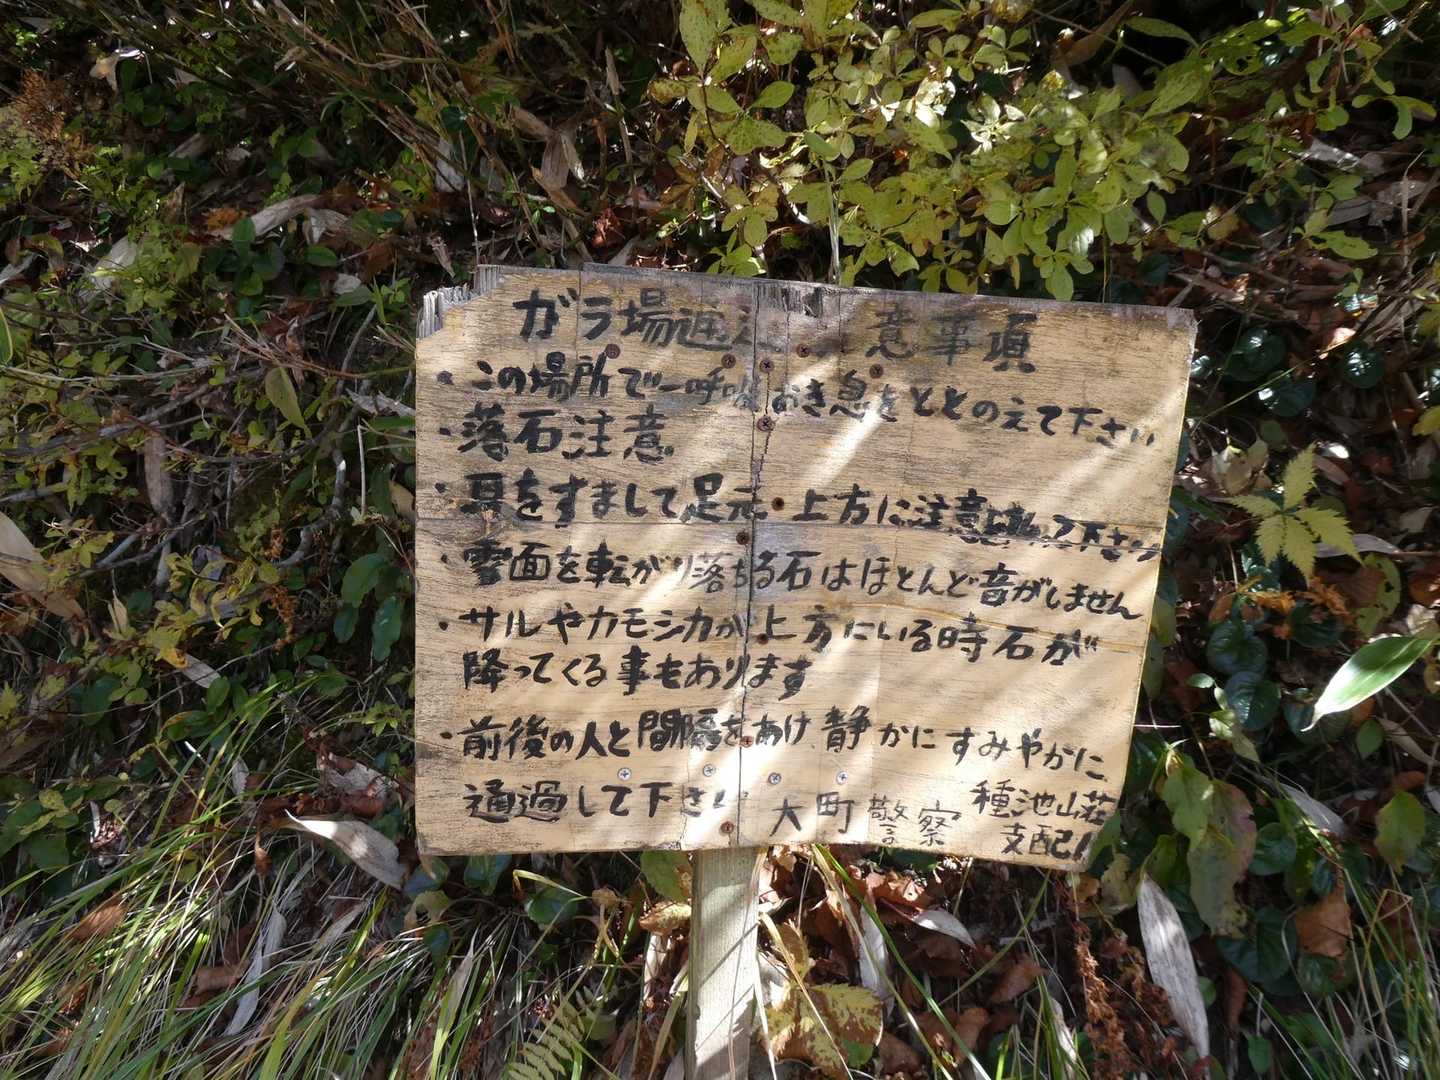 ガラ場通 意事項
・この場所で一呼吸おき息をととのえて下さい
・落石注意
・耳をすまして足元・上方に注意 下さい
・雪面を転がり落ちる石はほとんど音がしません
・サルやカモシカが上方にいる時石が
降ってくる事もあります
・前後の人と間隔をあけ静かにすみやかに
通過して下さい
大町警察
種池山荘
支配人